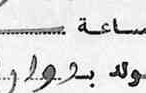 ساعة
ولد بدوار